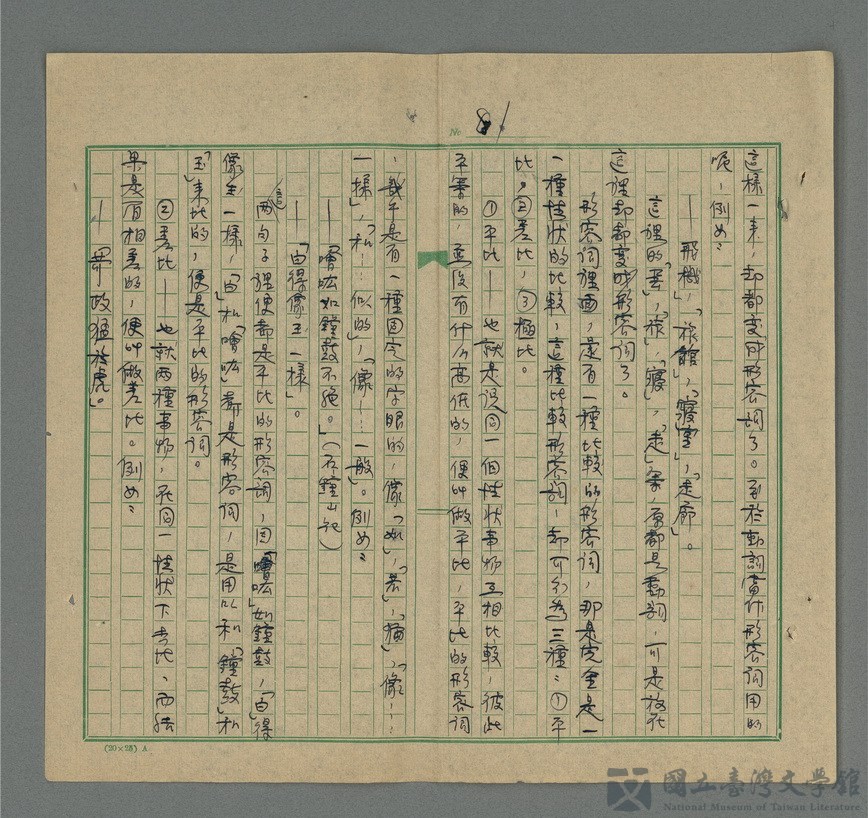 No 81
這樣一來，却都變成形容詞了。至於動詞當作形容詞用的
呢，例如：
——「飛機」，「旅館」，「寢室」，「走廊」。
這裡的「飛」，「旅」，「寢」，「走」等，原都是動詞，可是放在
這裡却都變成形容詞了。
形容詞裡面，還有一種比較的形容詞，那是完全是一
一種性狀的比較，這種比較形容詞，却可分為三種：①平
比，②差比，③極比。
①平比——也就是說同一個性狀事物互相比較，彼此
平等的，並沒有什麼高低的，便叫做平比，平比的形容詞
，幾乎是有一種固定的字眼的，像「如」，「若」，「猶」，「像……
一樣」，「和……似的」，「像……一般」。例如：
——「噌吰如鐘鼓不絕。」（石鐘山記）
——「白得像玉一樣」。
這兩句子裡便都是平比的形容詞，因「噌吰」如鐘鼓，「白」得
像玉一樣，「白」和「噌吰」都是形容詞，是用以和「鐘鼓」和
「玉」來比的，便是平比的形容詞。
②差比——也就兩種事物，在同一性狀下去比，而結
果是有相差的，便叫做差比。例如：
——「苛政猛於虎。」
(20×25) A
國立臺灣文學館
National Museum of Taiwan Literature